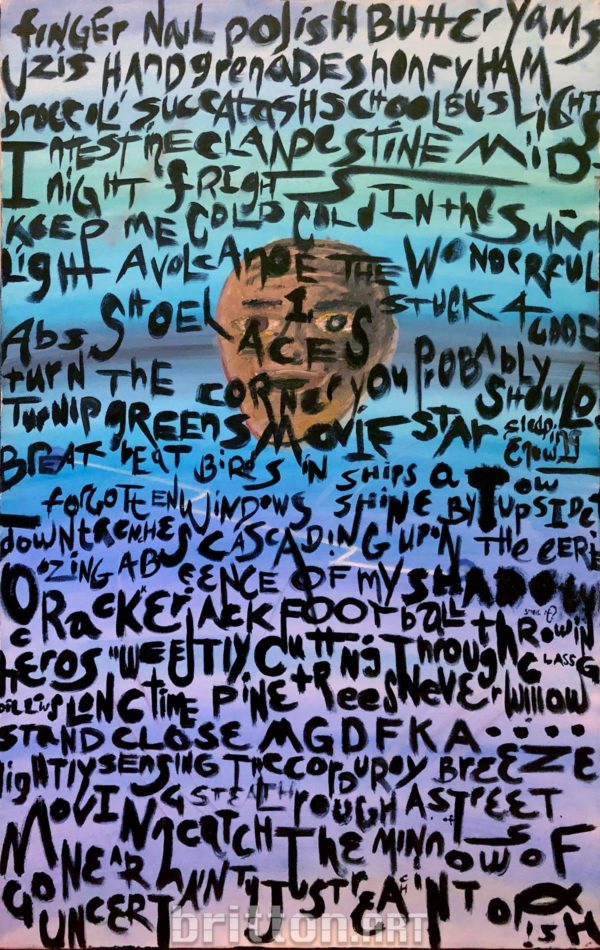 finger nail polish butter yams
uzis hand grenades honry ham
broccoli succatash school bus light
Intestine clandestine mid-
night frights
keep me cold cold in the sun-
light A volcanoe the wonderful
Abs shoel 1 stuck 4 good
aces
turn the corner you probably should
turnip greens movie star
Break beat birds in ships a tow
forgotten windows shine by upside
down trenches cascading upon the eerie
oozing absence of my shadow
cracker jack football throwin
heros "weeftly cutting through glass
long time pine trees never willow
stand close MGDFKA.....
lightly sensing the corduroy breeze
moving stealth through a street
near catch the minnow of
go uncertainty just reach into fish
britton.art